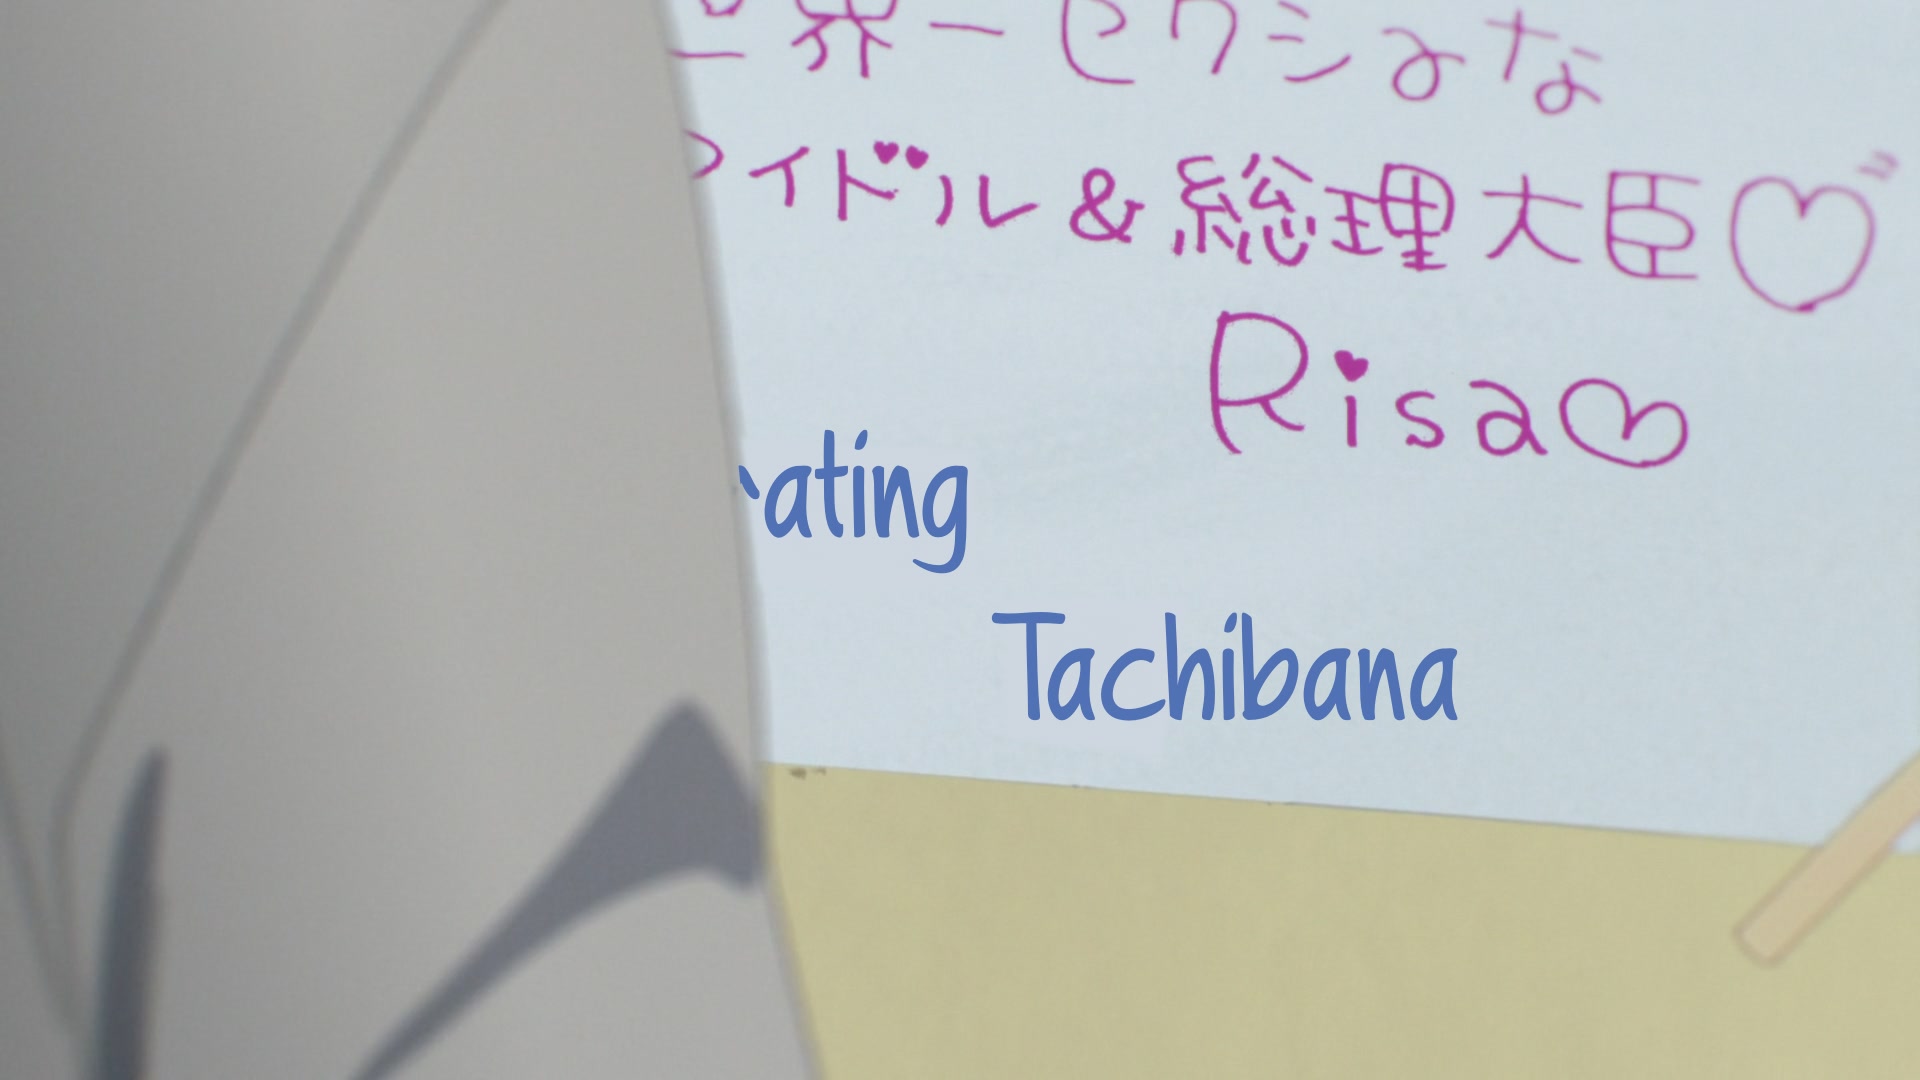 世界一セクシーな
アイドル&総理大臣♡
Risa♡
ating
Tachibana